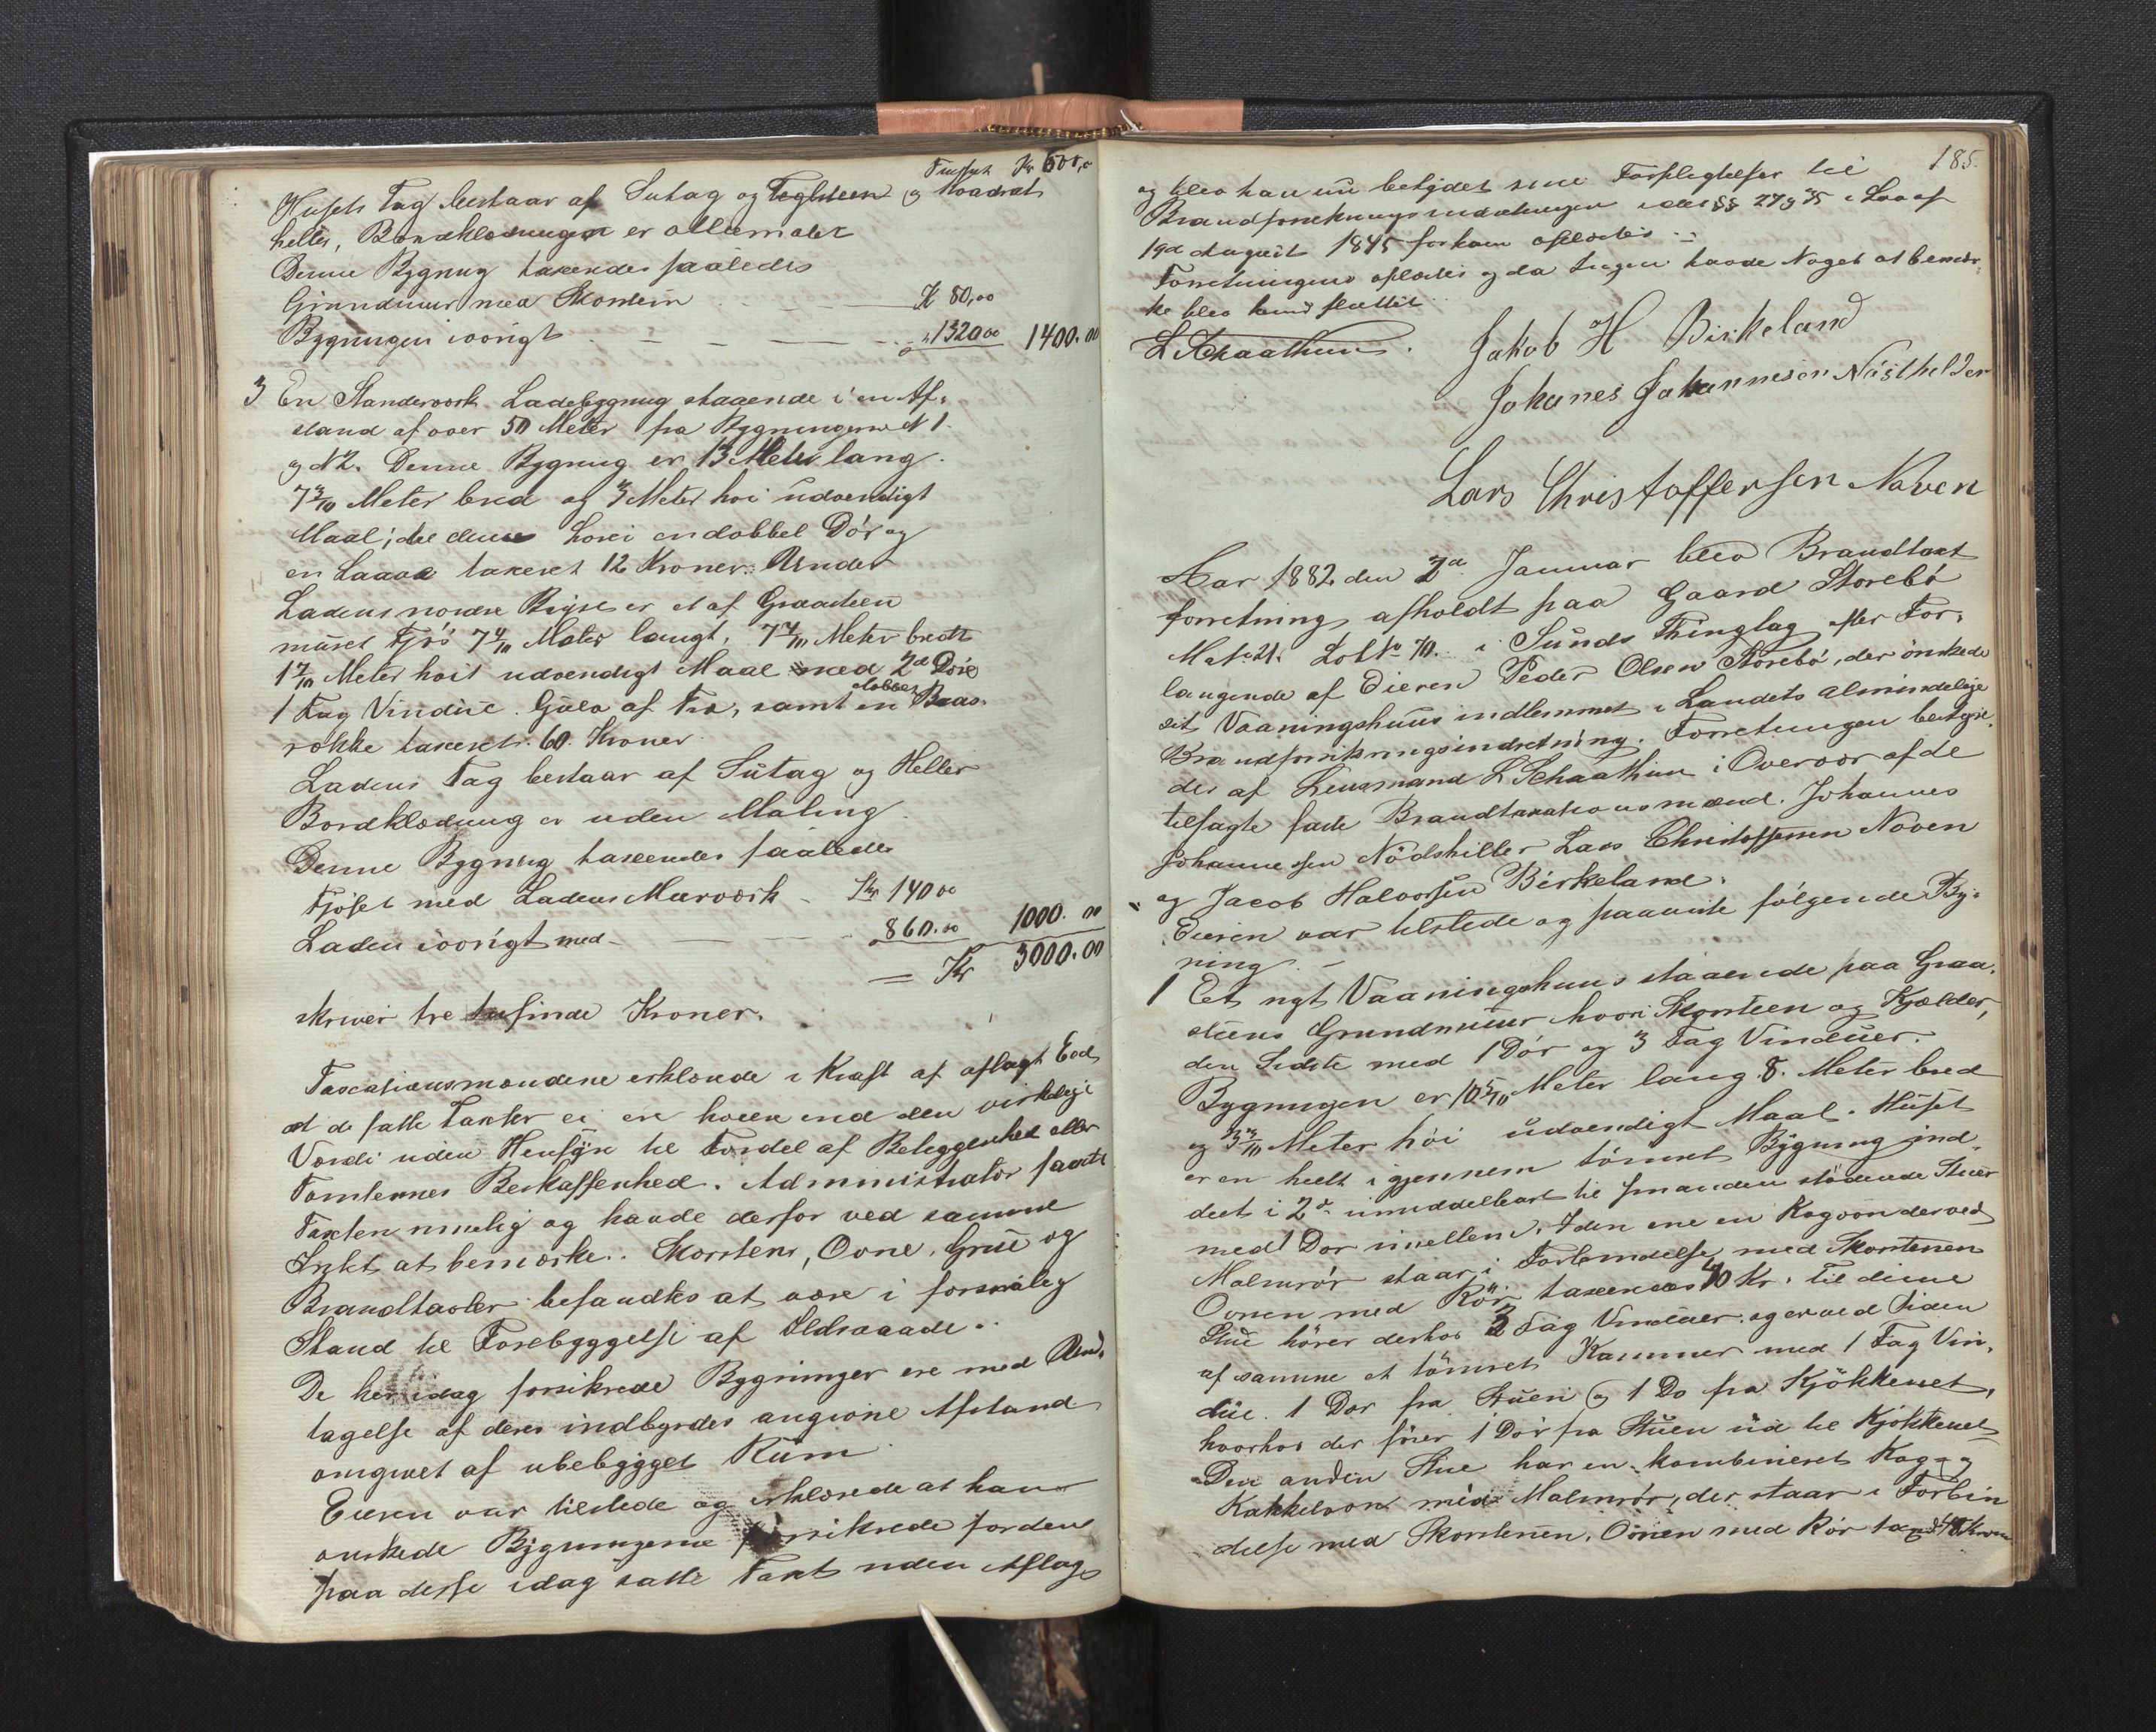 Transport Kr 600,00
Husets Tag bestaar af Sutag og Teglsteen og kvadrat
heller, Bordklædningen er oliemalet
Denne Bygning taxeredes saaledes
Grundmuur med Skorsten Kr 80,00
Bygningen iøvrigt " 1320 00 1400.00
3 En Standerværk Ladebygning staaende i en Af-
stand af over 50 Meter fra Bygningerne N 1
og N 2. Denne Bygning er 13 Meter lang
7 3/10 Meter bred og 3 Meter høi udvendigt
Maal; til denne hører en dobbel Dør og
en Laave taxeret 12 Kroner. Under
Ladens nordre Ende er et af Graasteen
muret Fjøs 7 4/10 Meter langt, 7 4/10 Meter bredt
1 7/10 Meter høit udvendigt Maal med 2de Døre
1 Fag Vindue. Gulv af Træ, samt en dobbel Baas-
række taxeret. 60. Kroner
Ladens Tag bestaar af Sutag og Heller
Bordklædning er uden Maling.
Denne Bygning taxeredes saaledes
Fjøset med Ladens Muurværk Kr 140 00
Laden iøvrigt med 860.00 1000.00
= Kr 3000.00
skriver tre tusinde Kroner.
Taxationsmændene erklærede i Kraft af aflagt Eed
at de satte Taxter ei ere høiere end den virkelige
Værdi uden Hensyn til Fordel af Beliggenhed eller
Tomternes Beskaffenhed. Administrator fandt
Taxten rimelig og havde derfor ved samme
Intet at bemærke. Skorstene, Ovne, Grue og
Brandtavler befandtes at være i forsvarlig
Stand til Forebyggelse af Ildsvaade.
De her idag forsikrede Bygninger ere med Und-
tagelse af deres indbyrdes angivne Afstand
omgivet af ubebygget Rum
Eieren var tilstede og erklærede at han
ønskede Bygningerne forsikrede for den
paa disse idag satte Taxt uden Afslag
185.
og blev han nu betydet sine Forpligtelser til
Brandforsikringsindretningen idet §§ 27 og 35 i Lov af
19de August 1845 for ham oplæstes
Forretningen oplæstes og da Ingen havde Noget at bemær-
ke blev den sluttet
L Skaathun. Jakob H Birkeland
Johanes Johannesen Nösthelder
Lars Christoffersen Naven
Aar 1882 den 2de Januar blev Brandtaxt
forretning afholdt paa Gaard Storebø
M No 21. Løb No 70. i Sunds Thinglag efter For-
langende af Eieren Peder Olsen Storebø, der ønskede
sit Vaaningshuus indlemmet i Landets almindelige
Brandforsikringsindretning. Forretningen bestyre-
des af Lensmand L Skaathun i Overvær af de
tilsagte faste Brandtaxationsmænd. Johannes
Johannessen Nödshilter Lars Christoffersen Naven
og Jacob Halvorsen Birkeland.
Eieren var tilstede og paaviste følgende Byg-
ning.
1 Et nyt Vaaningshuus staaende paa Graa-
steens Grundmuur hvori Skorsteen og Kjelder,
den Sidste med 1 Dør og 3 Fag Vinduer.
Bygningen er 10 5/10 Meter lang. 8. Meter bred
og 3 3/10 Meter høi udvendigt Maal. Huset
er en heelt igjennem tømret Bygning ind-
deelt i 2de umiddelbart til hinanden stødende Stuer
med 1 Dør imellem. I den ene en Kogovn der ved
Malmrør staar i Forbindelse med Skorstenen
Ovnen med Rör taxeredes 40 Kr. Til denne
Stue hører derhos 3 Fag Vinduer. og er ved Siden
af samme et tömret Kammer med 1 Fag Vin-
due. 1 Dør fra Stuen og 1 Do fra Kjøkkenet,
hvorhos der fører 1 Dör fra Stuen ud til Kjøkkenet
Den anden Stue har en kombineret Kog- og
Kakkelovn med Malmrør, der staar i Forbin
delse med Skorstenen. Ovnen med Rör taxeredes Kroner